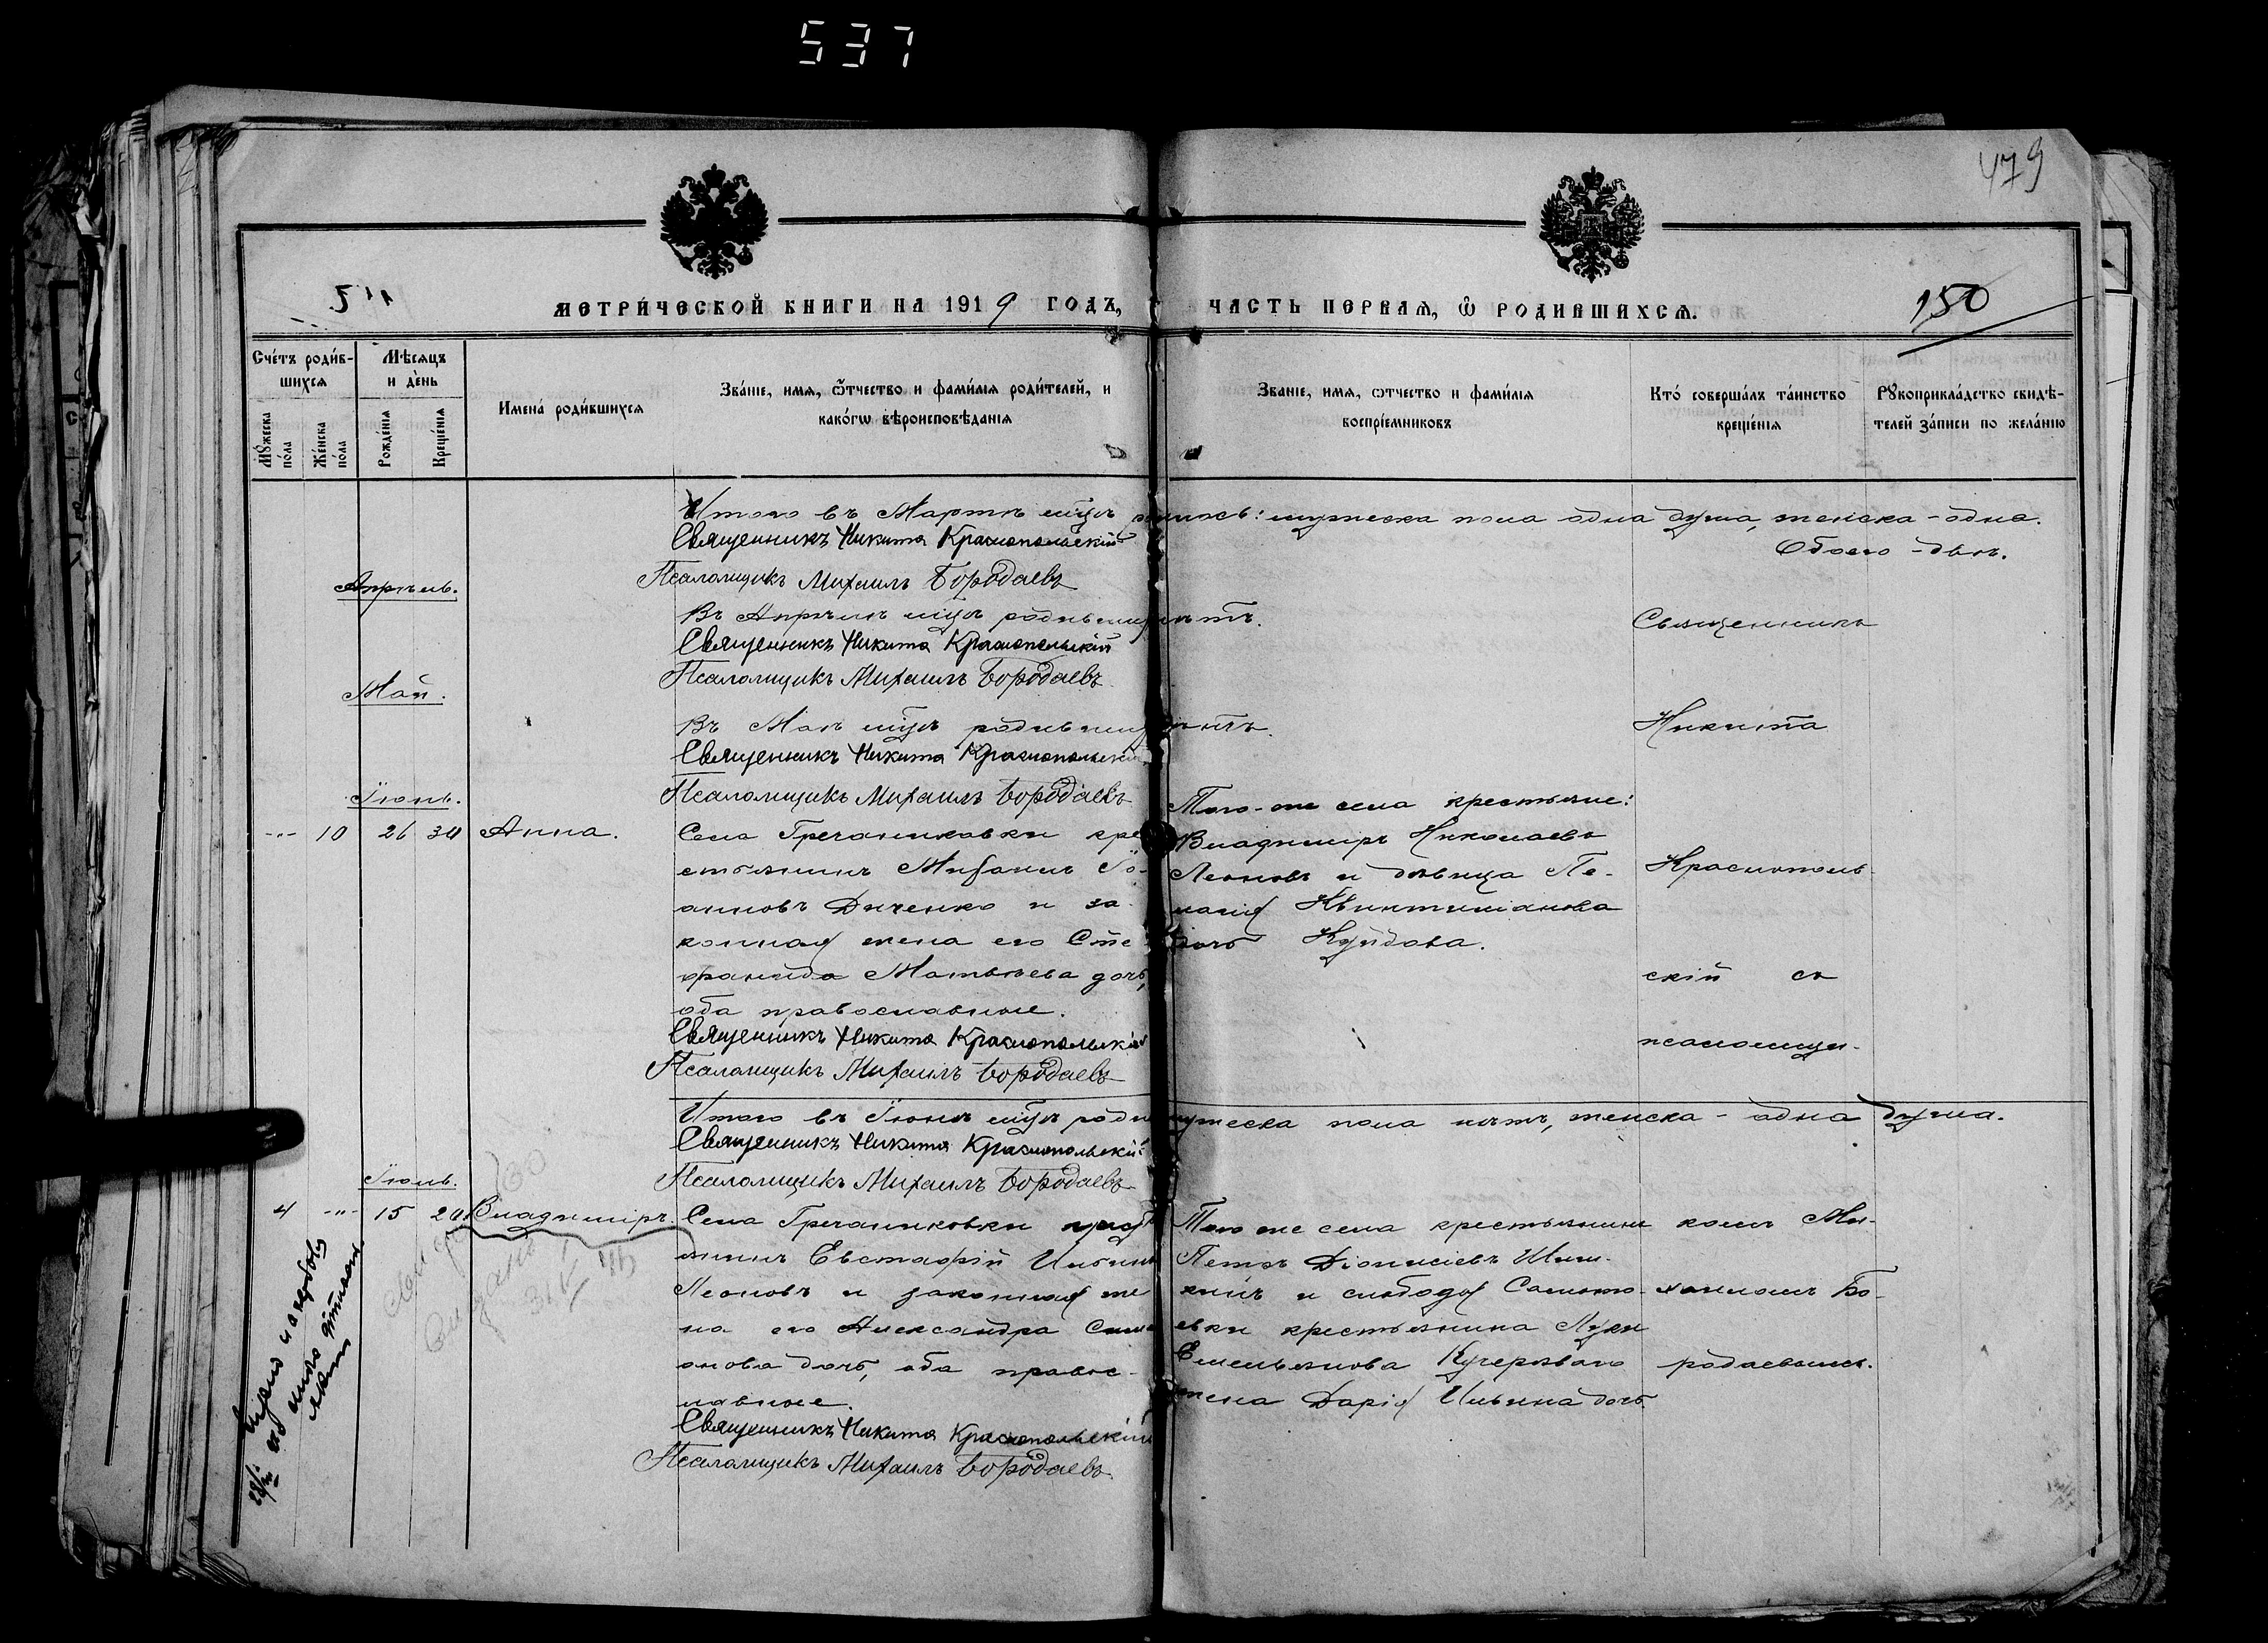 537
479
150
МЕТРИ́ЧЕСКОЙ КНИГИ НА 1919 ГОДЪ,
ЧАСТЬ ПЕРВАЯ, Ѡ РОДИВШИХСѦ.
Сче́тъ роди́в-
шихся
Мѣсяцъ
и де́нь
Му́жеска
по́ла
Же́нска
по́ла
Рожде́нія
Креще́нія
Имена́ роди́вшихся
Зва́ніе, имя, ѿчество и фами́лія роди́телей, и
како́гѡ вѣроисповѣ́данія
Званіе, имя, ѿчество и фами́лія
воспріе́мниковъ
Кто́ соверша́лъ та́инство
креще́нія
Рꙋкоприкла́дство свидѣ́-
телей за́писи по жела́нію
Итого въ Мартѣ мцѣ родилось: мужеска пола одна душа, женска - одна.
Обоего - двѣ.
Священникъ Никита Краснопольскій
Псаломщикъ Михаилъ Бородаевъ
Апрѣль.
Въ Апрѣлѣ мцѣ родившихся нѣтъ.
Священникъ Никита Краснопольскій
Псаломщикъ Михаилъ Бородаевъ
Май.
Въ Маѣ мцѣ родившихся нѣтъ.
Священникъ Никита Краснопольскій
Псаломщикъ Михаилъ Бородаевъ
Іюнь.
-"- 10 26 30 Анна.
Села Гречаниковки кре-
стьянинъ Михаилъ Іо-
анновъ Дяченко и за-
конная жена его Сте-
фанида Матвѣева дочь,
оба православные.
Священникъ Никита Краснопольскій
Псаломщикъ Михаилъ Бородаевъ
Того-же села крестьяне:
Владиміръ Николаевъ
Леоновъ и дѣвица Пе-
лагія
дочь
Священникъ
Никита
Краснополь-
скій съ
псаломщи-
Итого въ Іюнѣ мцѣ роди мужеска пола нѣтъ, женска - одна душа.
Священникъ Никита Краснопольскій
Псаломщикъ Михаилъ Бородаевъ
Іюль.
4 -"- 15 20 Владиміръ.
Села Гречаниковки крест
янинъ Евстафій Ильинъ
Леоновъ и законная же
на его Александра Сим
онова дочь, оба правос-
лавные.
Священникъ Никита Краснопольскій
Псаломщикъ Михаилъ Бородаевъ
Того же села крестьянинъ
Петръ Діонисіевъ Шиш-
кинъ и слободы
евки крестьянина Луки
Емельянова Кучеряваго
жена Дарія Ильина дочь.
комъ Ми-
хаиломъ Бо-
родаевымъ.